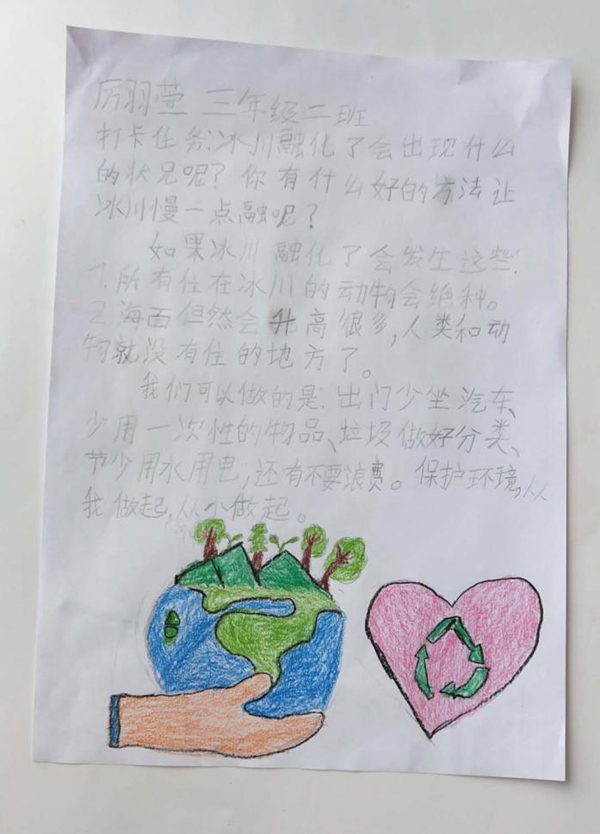 厉羽萱 三年级二班
打卡任务:冰川融化了会出现什么
的状况呢?你有什么好的方法让
冰川慢一点融呢?
如果冰川融化了会发生这些:
1.所有住在冰川的动物会绝种。
2.海面但然会升高很多,人类和动
物就没有住的地方了。
我们可以做的是:出门少坐汽车、
少用一次性的物品、垃圾做好分类、
节少用水用电,还有不要浪费。保护环境,从
我做起,从小做起。